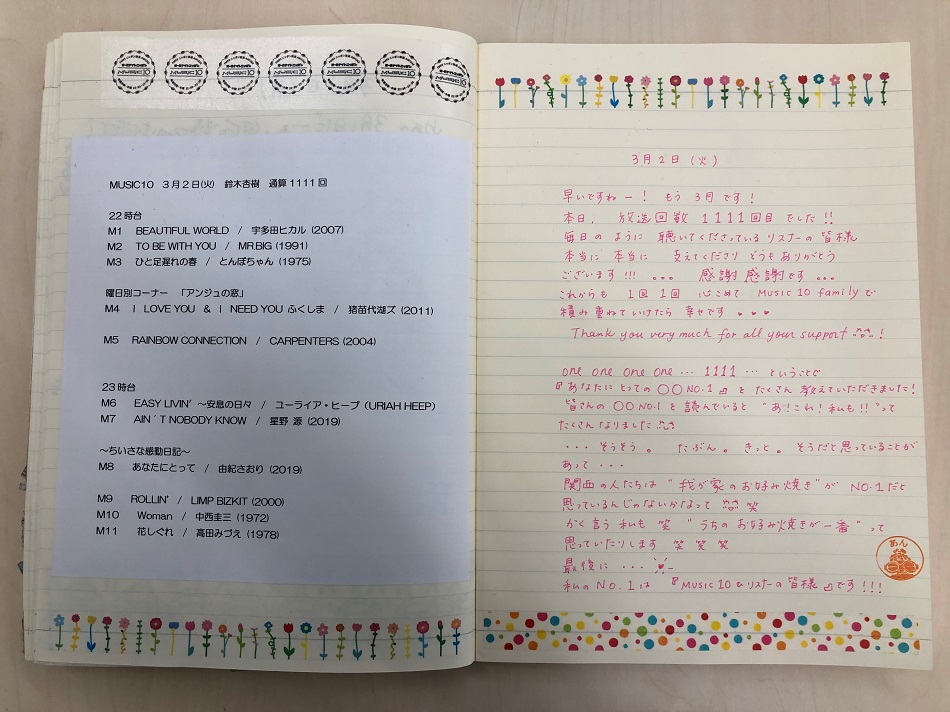 MUSIC10
MUSIC10
MUSIC10
MUSIC10
MUSIC10
MUSIC10
MUSIC10
MUSIC10 3月2日(火) 鈴木杏樹 通算1111回
22時台
M1 BEAUTIFUL WORLD / 宇多田ヒカル (2007)
M2 TO BE WITH YOU / MR.BIG (1991)
M3 ひと足遅れの春 / とんぼちゃん (1975)
曜日別コーナー 「アンジュの窓」
M4 I LOVE YOU & I NEED YOU ふくしま / 猪苗代湖ズ (2011)
M5 RAINBOW CONNECTION / CARPENTERS (2004)
23時台
M6 EASY LIVIN' ～安息の日々 / ユーライア・ヒープ (URIAH HEEP)
M7 AIN´T NOBODY KNOW / 星野 源 (2019)
～ちいさな感動日記～
M8 あなたにとって / 由紀さおり (2019)
M9 ROLLIN' / LIMP BIZKIT (2000)
M10 Woman / 中西圭三 (1972)
M11 花しぐれ / 高田みづえ (1978)
3月2日 (火)
早いですねー! もう 3月です!
本日、放送回数 1111回目でした!!
毎日のように 聴いてくださっている リスナーの皆様
本当に 本当に 支えてくださり どうもありがとう
ございます!!! 。。。 感謝 感謝です 。。。
これからも 1回 1回 心こめて Music 10 familyで
積み重ねていけたら 幸せです
Thank you very much for all your support !
one one one one … 1111 … ということで
『あなたにとっての○○NO.1』と たくさん 教えていただきました!
皆さんの ○○NO.1 と 読んでいると “あ!これ!私も!!”って
たくさん なりました
・・・ そうそう 。 たぶん 。 きっと 。 そうだと思っていることが
あって ・・・
関西の人たちは “我が家のお好み焼き”が NO.1だと
思っているんじのないかなって 笑
かく言う 私も 笑 “うちの お好み焼きが一番”って
思っていたりします 笑 笑 笑
最後に ・・・
私のNO.1は 『Music10&リスナーの皆様』です!!!
あん